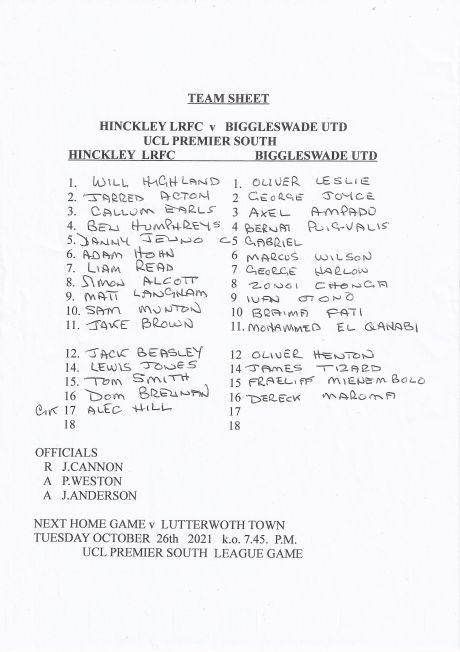 TEAM SHEET
HINCKLEY LRFC v BIGGLESWADE UTD
UCL PREMIER SOUTH
HINCKLEY LRFC BIGGLESWADE UTD
1. WILL HIGHLAND 1. OLIVER LESLIE
2. JARRED ACTON 2 GEORGE JOYCE
3. CALLUM EARLS 3 AXEL AMPADU
4. BEN HUMPHREYS 4 BERNAT PUIG-VALIS
5. DANNY JENNO C 5 GABRIEL
6. ADAM HOHN 6 MARCUS WILSON
7. LIAM READ 7 GEORGE HARLOW
8. SIMON ALCOTT 8 CHONGA
9. MATT LANGHAM 9 IVAN OTONO
10. SAM MUNTON 10 BRAIMA FATI
11. JAKE BROWN 11. MOHAMMED EL QANABI
12. JACK BEASLEY 12 OLIVER HENTON
14. LEWIS JONES 14 JAMES TIZARD
15. TOM SMITH 15 MIENEMBOLO
16 DOM BRENNAN 16 DERECK MAROMA
G/K 17 ALEC HILL 17
18 18
OFFICIALS
R J.CANNON
A P.WESTON
A J.ANDERSON
NEXT HOME GAME v LUTTERWOTH TOWN
TUESDAY OCTOBER 26th 2021 k.o. 7.45. P.M.
UCL PREMIER SOUTH LEAGUE GAME